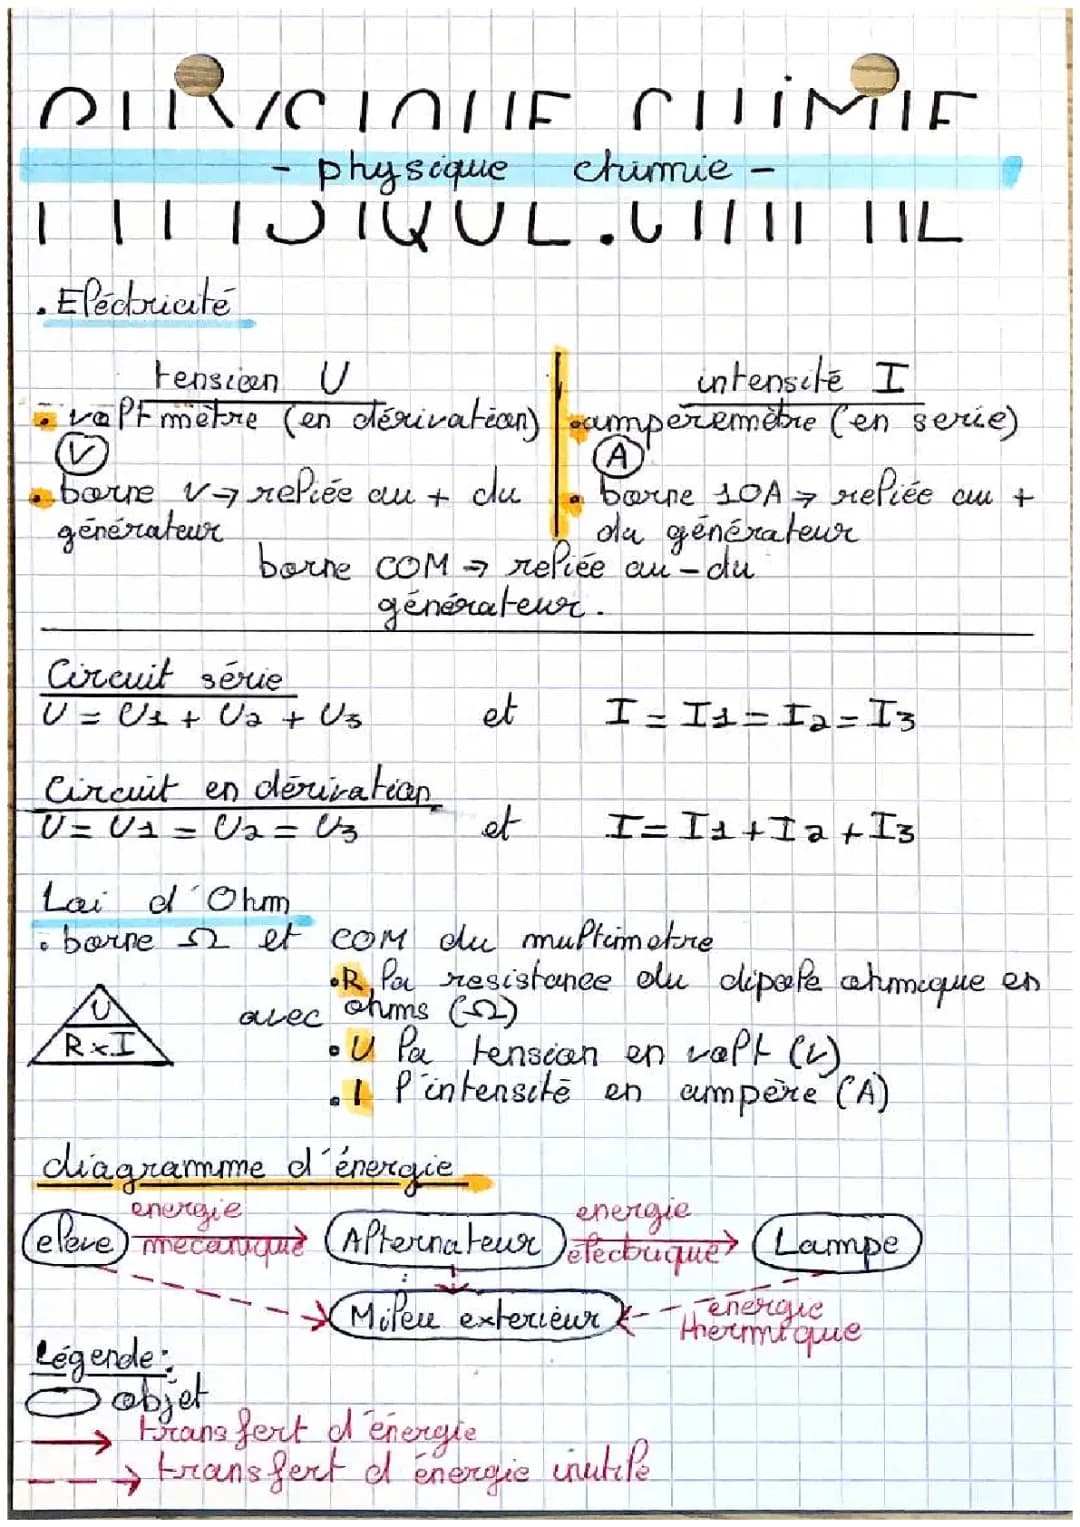 PHYSIQUE CHIMIE
- physique chimie -
. Electricité
tension U
intensité I
. voltmètre (en dérivation)
. ampèremètre (en serie)
V
A
. borne V → reliée au + du
générateur
. borne 10A → reliée au +
du générateur
borne COM → reliée au - du
générateur.
Circuit série
U = U1 + U2 + U3 et I = I1 = I2 = I3
Circuit en dérivation
U = U1 = U2 = U3 et I = I1 + I2 + I3
Loi d'Ohm
. borne Ω et COM du multimetre
U
R x I
avec
. R la resistance du dipole ohmique en
ohms (Ω)
. U la tension en volt (V)
. I l'intensité en ampère (A)
diagramme d'énergie
eleve
energie
mécanique
Alternateur
energie
électrique
Lampe
Milieu exterieur
énergie
thermique
Légende :
objet
transfert d'énergie
transfert d'énergie inutile